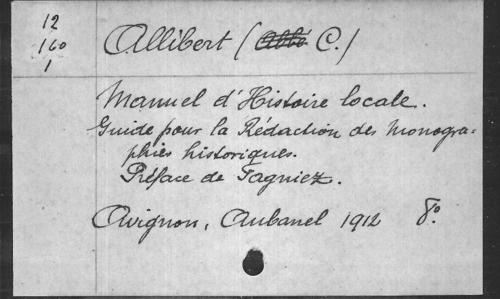 12
160
1
Allibert (Abbé C.)
Manuel d'Histoire locale.
Guide pour la Rédaction des Monogra-
phies historiques.
Préface de Fagniez.
Avignon, Aubanel 1912 8°.